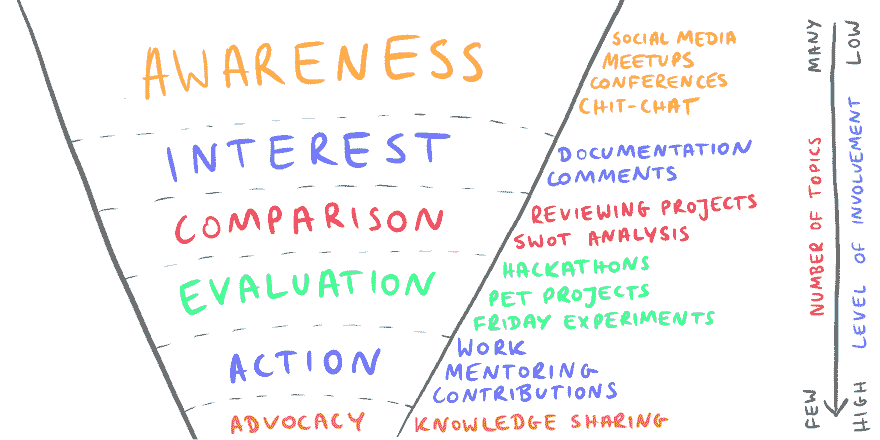 AWARENESS
SOCIAL MEDIA
MEETUPS
CONFERENCES
CHIT-CHAT
INTEREST
DOCUMENTATION
COMMENTS
COMPARISON
REVIEWING PROJECTS
SWOT ANALYSIS
EVALUATION
HACKATHONS
PET PROJECTS
FRIDAY EXPERIMENTS
ACTION
WORK
MENTORING
CONTRIBUTIONS
ADVOCACY
KNOWLEDGE SHARING
MANY
NUMBER OF TOPICS
FEW
LOW
LEVEL OF INVOLVEMENT
HIGH